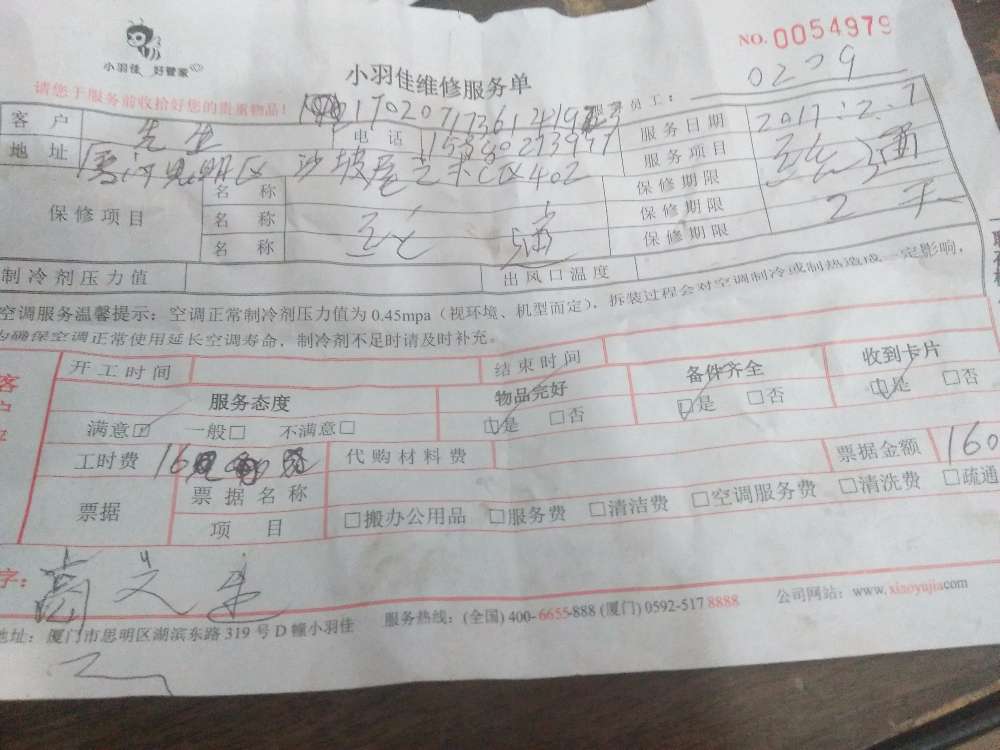 小羽佳 好管家
NO. 0054979
小羽佳维修服务单
请您于服务前收拾好您的贵重物品！
员工： 0209
客户 先生 电话 服务日期 2017.2.7
地址 厦门思明区 沙坡尾艺术C区402 服务项目
保修项目 名称 保修期限
名称 保修期限 2
名称 保修期限
制冷剂压力值 出风口温度
空调服务温馨提示：空调正常制冷剂压力值为 0.45mpa（视环境、机型而定），拆装过程会对空调制冷或制热造成一定影响，
为确保空调正常使用延长空调寿命，制冷剂不足时请及时补充。
开工时间 结束时间
服务态度 物品完好 备件齐全 收到卡片
满意☑ 一般□ 不满意□ ☑是 □否 ☑是 □否 ☑是 □否
工时费 代购材料费 票据金额 160
票据 票据名称
项目 □搬办公用品 □服务费 □清洁费 □空调服务费 □清洗费 □疏通
字：
地址：厦门市思明区湖滨东路 319 号 D 幢小羽佳 服务热线：(全国) 400-6655-888 (厦门) 0592-517 8888 公司网站：www.xiaoyujia.com